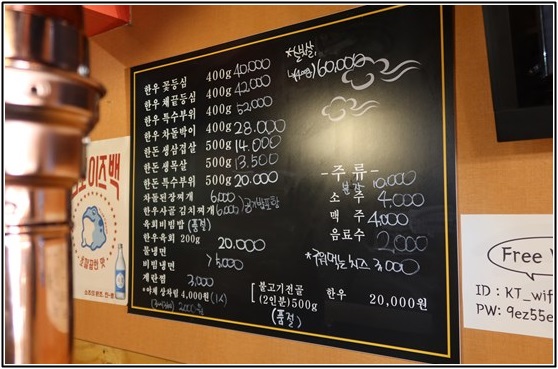 한우 꽃등심 400g 40,000
한우 채끝등심 400g 42,000
한우 특수부위 400g 52,000
한우 차돌박이 400g 28,000
한돈 생삼겹살 500g 14,000
한돈 생목살 500g 13,500
한돈 특수부위 500g 20,000
차돌된장찌개 6,000
한우사골 김치찌개 6,000 공기밥포함
육회비빔밥 (품절)
한우육회 200g 20,000
물냉면
비빔냉면 > 5,000
계란찜 3,000
*야채 상차림 4,000원 (1人)
*살치살
60,000
- 주 류 -
분감 10,000
소 주 4,000
맥 주 4,000
음료수 2,000
*구워먹는 치즈 3,000
[ 불고기전골
(2인분)500g 한우 20,000원
(품절)
이즈백
Free
ID : KT_wif
PW: 9ez55e